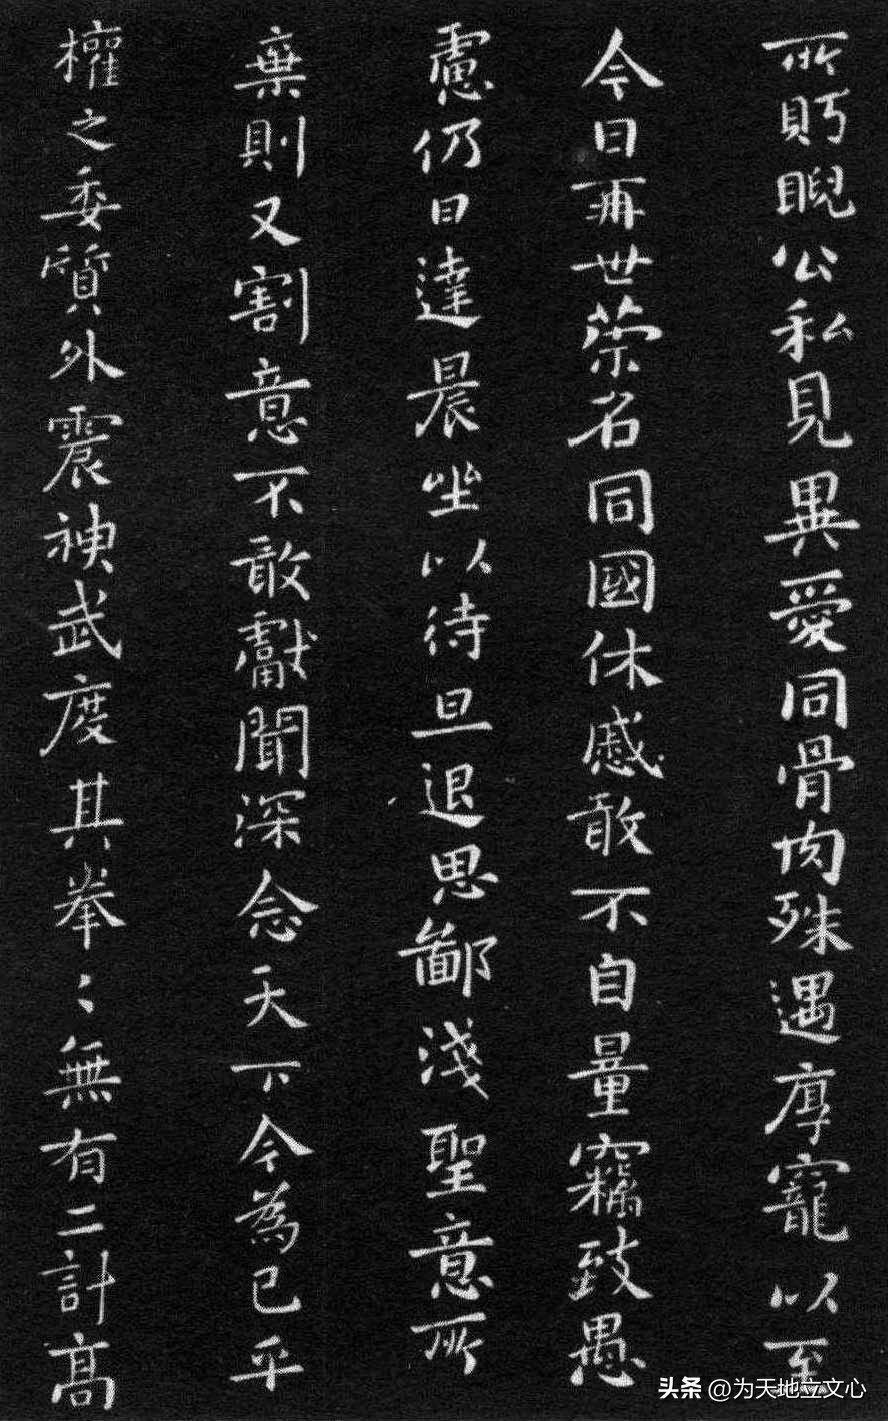 所眄睨公私見異愛同骨肉殊遇厚寵以至
今日再世荣名同國休慼敢不自量竊致愚
慮仍日達晨坐以待旦退思鄙淺聖意所
棄則又割意不敢獻聞深念天下今為已平
權之委質外震神武度其拳〻無有二計高
头条 @为天地立文心